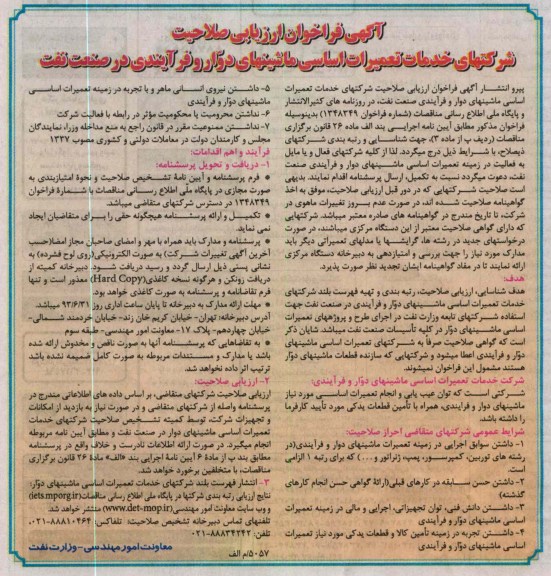 آگهی فراخوان ارزیابی صلاحیت
شرکتهای خدمات تعمیرات اساسی ماشینهای دوّار و فرآیندی در صنعت نفت
پیرو انتشار آگهی فراخوان ارزیابی صلاحیت شرکتهای خدمات تعمیرات
اساسی ماشینهای دوّار و فرآیندی صنعت نفت، در روزنامه های کثیرالانتشار
و پایگاه ملّی اطلاع رسانی مناقصات (شماره فراخوان ۱۳۴۸۳۴۹) بدینوسیله
فراخوان مذکور مطابق آیین نامه اجرایی بند الف ماده ۲۶ قانون برگزاری
مناقصات (ردیف ب از ماده ۳)، جهت شناسایی و رتبه بندی شرکتهای
ذیصلاح، با شرایط ذیل درج میگردد. لذا از کلیه شرکتهای فعال و یا مایل
به فعالیت در زمینه تعمیرات اساسی ماشینهای دوّار و فرآیندی صنعت
نفت، دعوت میگردد نسبت به تکمیل، ارسال پرسشنامه اقدام نمایند. بدیهی
است صلاحیت شرکتهایی که در دور قبل ارزیابی صلاحیت، موفق به اخذ
گواهینامه صلاحیت شده اند، در صورت عدم بروز تغییرات ماهوی در
شرکت، تا تاریخ مندرج در گواهینامه های صادره معتبر میباشد. شرکتهایی
که دارای گواهی صلاحیت معتبر از این دستگاه مرکزی میباشند، در صورت
درخواستهای جدید در رشته ها، گرایشها یا مدلهای تعمیراتی دیگر باید
مدارک مورد نیاز را جهت بررسی و امتیازدهی به دبیرخانه دستگاه مرکزی
ارائه نمایند تا در مفاد گواهینامه ایشان تجدید نظر صورت پذیرد.
هدف:
هدف شناسایی، ارزیابی صلاحیت، رتبه بندی و تهیه فهرست بلند شرکتهای
خدمات تعمیرات اساسی ماشینهای دوّار و فرآیندی در صنعت نفت جهت
استفاده شرکتهای تابعه وزارت نفت در اجرای طرح و پروژههای تعمیرات
اساسی ماشینهای دوّار در کلیه تأسیسات صنعت نفت میباشد. شایان ذکر
است که گواهی صلاحیت صرفاً به شرکتهای تعمیرات اساسی ماشینهای
دوّار و فرآیندی اعطا میشود و شرکتهایی که سازنده قطعات ماشینهای دوّار
هستند مشمول این فراخوان نمیشوند.
شرکت خدمات تعمیرات اساسی ماشینهای دوّار و فرآیندی:
شرکتی است که توان عیب یابی و انجام تعمیرات اساسی مورد نیاز
ماشینهای دوّار و فرایندی، همراه با تأمین قطعات یدکی مورد تأیید کارفرما
را داشته باشد.
شرایط عمومی شرکتهای متقاضی احراز صلاحیت:
۱- داشتن سوابق اجرایی در زمینه تعمیرات ماشینهای دوّار و فرآیندی(در
رشته های توربین، کمپرسور، پمپ، ژنراتور و...) که برای رتبه ۱ الزامی
است.
۲- داشتن حسن سابقه در کارهای قبلی(ارائه گواهی حسن انجام کارهای
گذشته)
۳- داشتن دانش فنی، توان تجهیزاتی، اجرایی و مالی در زمینه تعمیرات
اساسی ماشینهای دوّار و فرآیندی
۴- داشتن تجربه در زمینه تأمین کالا و قطعات یدکی مورد نیاز تعمیرات
اساسی ماشینهای دوّار و فرآیندی
۵- داشتن نیروی انسانی ماهر و با تجربه در زمینه تعمیرات اساسی
ماشینهای دوّار و فرآیندی
۶- نداشتن محرومیت یا محکومیت مؤثر در رابطه با فعالیت شرکت
۷- نداشتن ممنوعیت مقرر در قانون راجع به منع مداخله وزراء نمایندگان
مجلس و کارمندان دولت در معاملات دولتی و کشوری مصوب ۱۳۳۷
فرآیند و اهم اقدامات:
۱- دریافت و تحویل پرسشنامه:
* فرم پرسشنامه و آیین نامهٔ تشخیص صلاحیت و نحوهٔ امتیازبندی به
صورت مجازی در پایگاه ملّی اطلاع رسانی مناقصات با شمارهٔ فراخوان
۱۳۴۸۳۴۹ در دسترس شرکتهای متقاضی میباشد.
* تکمیل و ارائه پرسشنامه هیچگونه حقی را برای متقاضیان ایجاد
نمی نماید.
* پرسشنامه و مدارک باید همراه با مهر و امضای صاحبان مجاز امضا(حسب
آخرین آگهی تغییرات شرکت) به صورت الکترونیکی(روی لوح فشرده) به
نشانی پستی ذیل ارسال گردد و رسید دریافت شود. دبیرخانه کمیته از
دریافت زونکن و هرگونه نسخه کاغذی(Hard Copy) معذور است و تنها
فرم تقاضانامه و پرسشنامه به صورت کاغذی خواهد بود.
* مهلت ارائه مدارک به دبیرخانه تا پایان ساعت اداری روز ۹۳/۶/۳۱ میباشد.
آدرس دبیرخانه: تهران- خیابان کریم خان زند- خیابان خردمند شمالی-
خیابان چهاردهم- پلاک ۱۷- معاونت امور مهندسی- طبقه سوم
* به تقاضاهایی که پرسشنامه آنها به صورت ناقص و مخدوش ارائه شده
باشد یا مدارک و مستندات مربوطه به صورت کامل ضمیمه نشده باشد
ترتیب اثر داده نخواهد شد.
۲- ارزیابی صلاحیت:
ارزیابی صلاحیت شرکتهای متقاضی، بر اساس داده های اطلاعاتی مندرج در
پرسشنامه واصله از شرکتهای متقاضی و در صورت نیاز به بازدید از امکانات
و تجهیزات شرکت، توسط کمیته تشخیص صلاحیت شرکتهای خدمات
تعمیرات اساسی ماشینهای دوّار در صنعت نفت و مطابق آیین نامه مربوطه
انجام میگیرد. در صورت ارائه اطلاعات نادرست و خلاف واقع در پرسشنامه
مطابق بند پ از مادهٔ ۶ آیین نامهٔ اجرایی بند «الف» مادهٔ ۲۶ قانون برگزاری
مناقصات، با متخلفین برخورد خواهد شد.
۳- انتشار فهرست بلند شرکتهای خدمات تعمیرات اساسی ماشینهای دوّار:
نتایج ارزیابی رتبه بندی شرکتها در پایگاه ملی اطلاع رسانی مناقصات(iets.mporg.ir)
و وب سایت معاونت امور مهندسی(www.det-mop.ir) منتشر خواهد شد.
تلفنهای تماس دبیرخانه تشخیص صلاحیت: تلفاکس ۸۸۸۱۰۴۶۴-۰۲۱،
تلفن: ۸۸۸۳۴۲۴۲-۰۲۱
۵۰۵۷/م الف
معاونت امور مهندسی - وزارت نفت